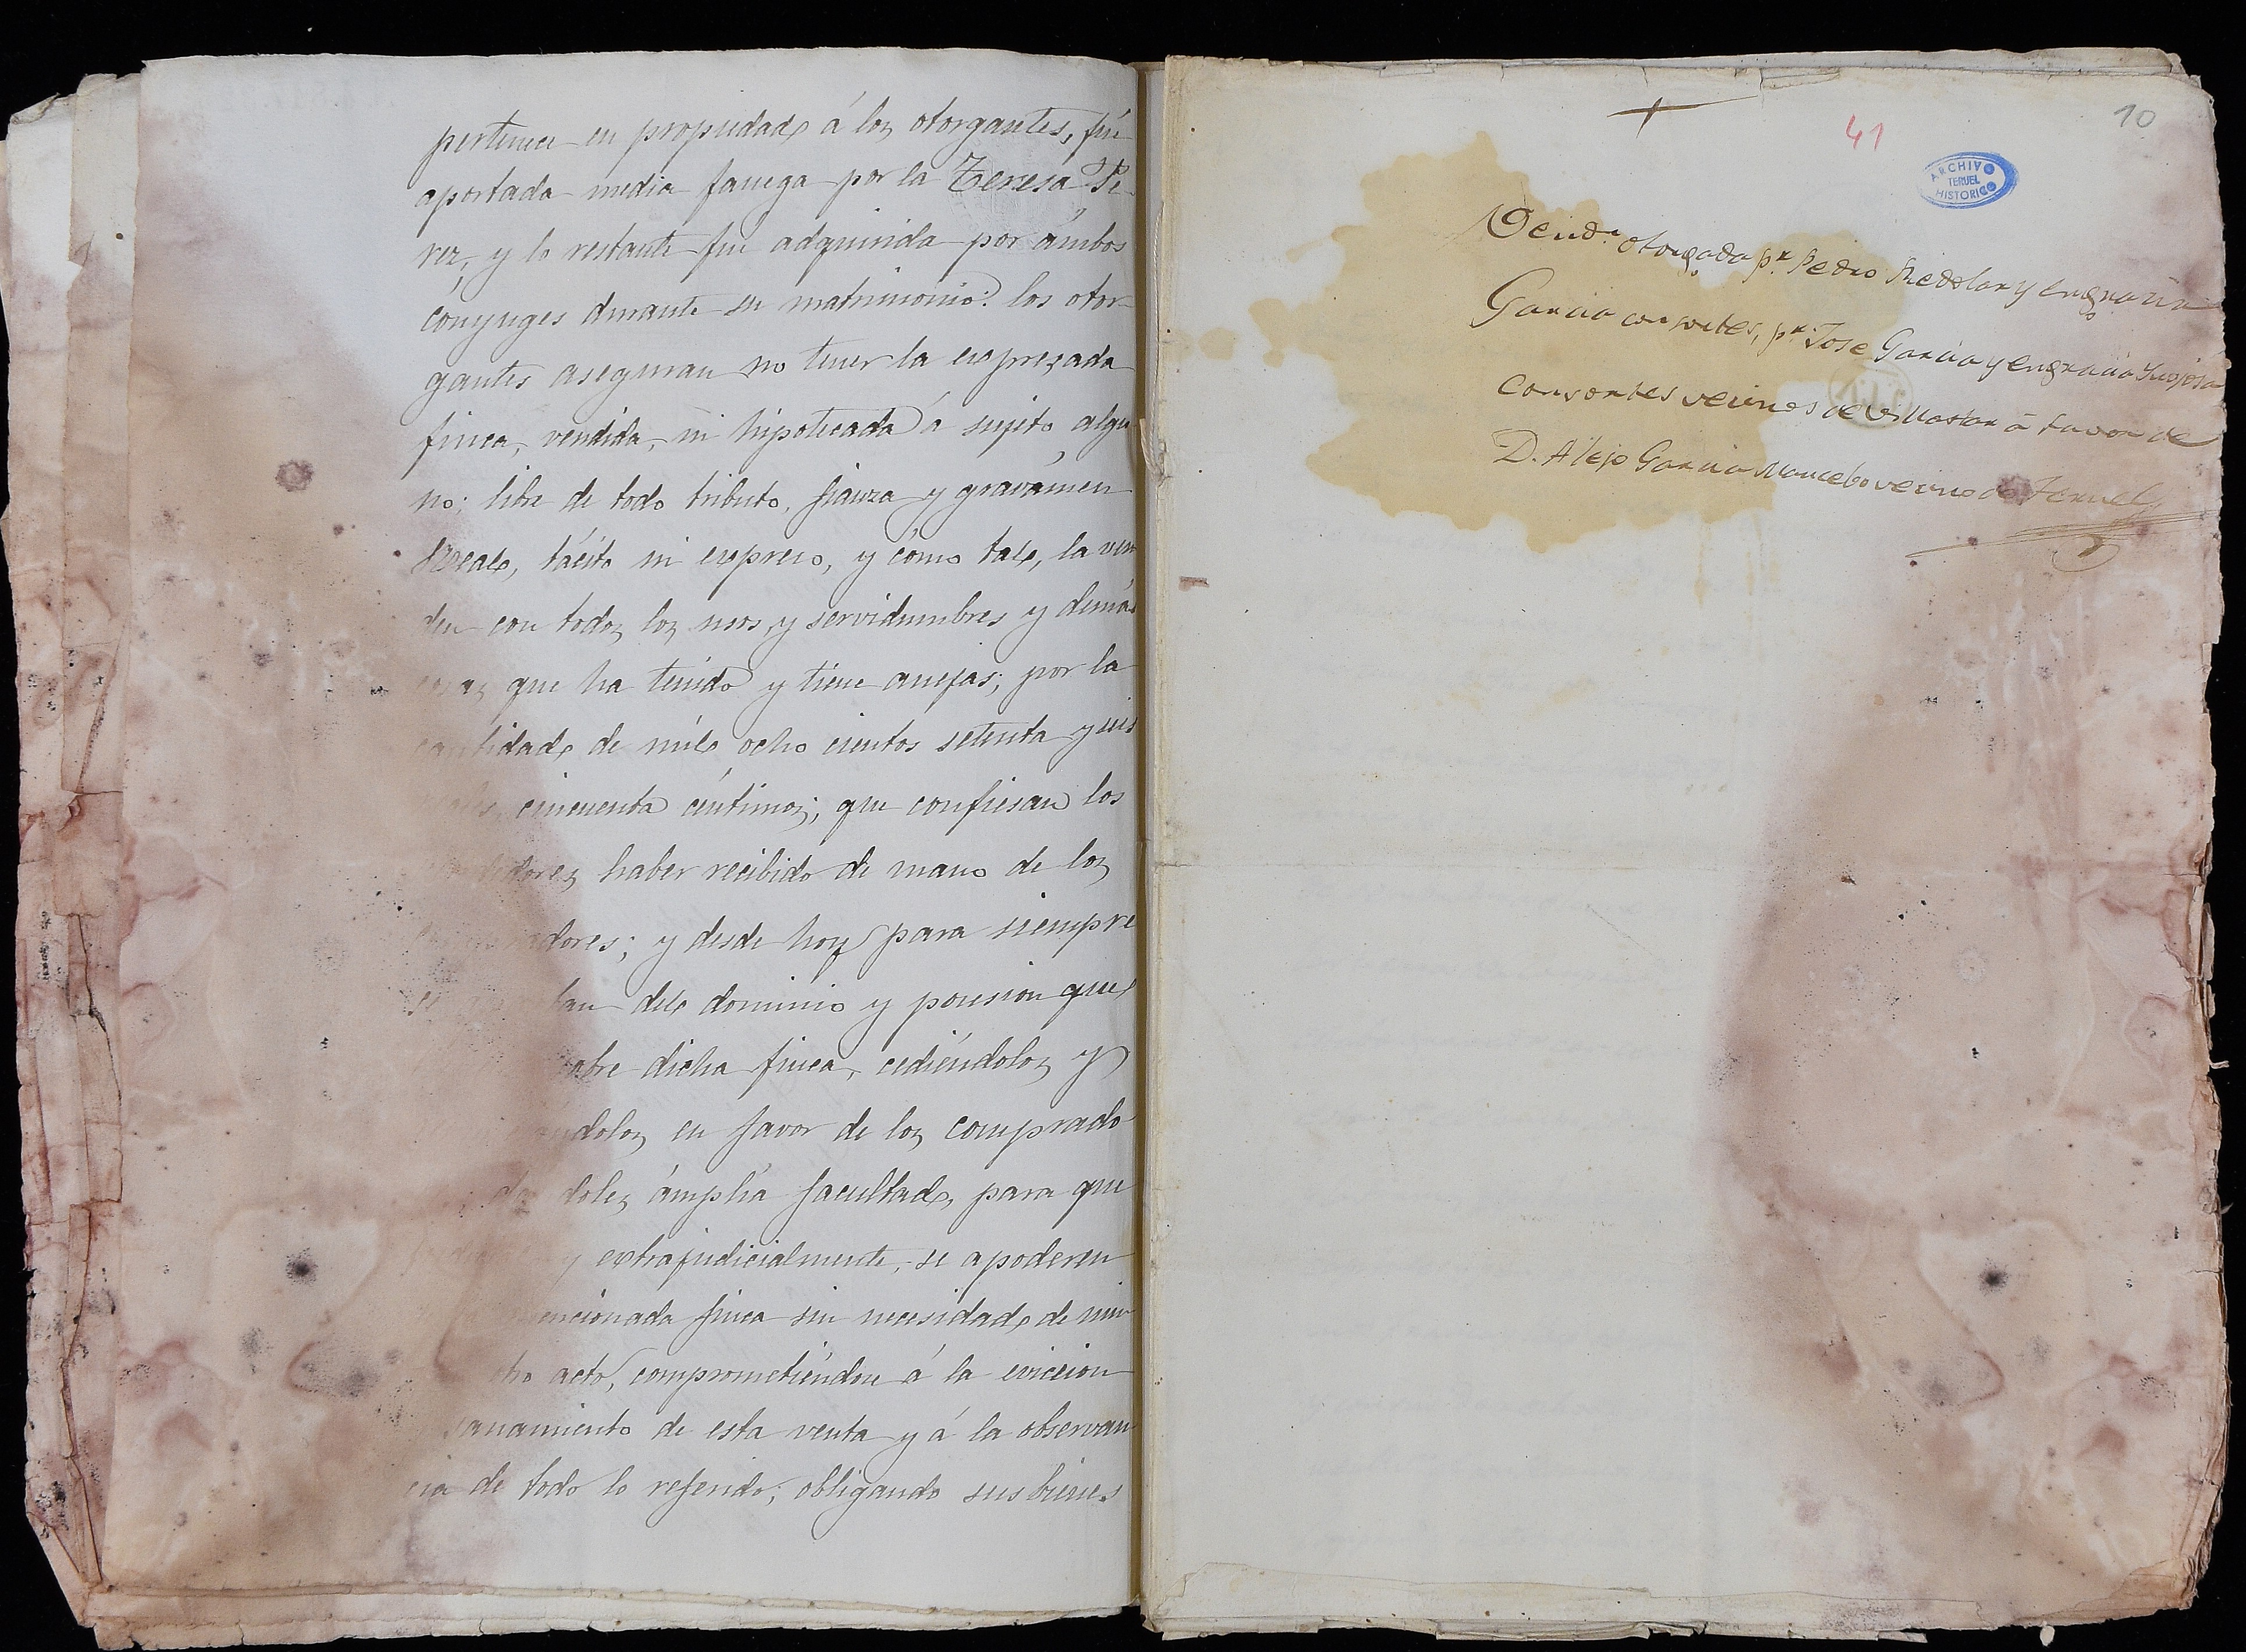 pertenece en propiedad á los otorgantes, fué
aportada media fanega por la Teresa Pe-
rez, y lo restante fue adquirida por ámbos
conyuges durante su matrimonio: los otor
gantes aseguran no tener la expresada
finca, vendida, ni hipotecada á sujeto algu
no; libre de todo tributo, fianza y gravámen
Real, tácito ni expreso, y cómo tal, la ven
den con todos los usos, y servidumbres y demás
cosas que ha tenido y tiene anejas; por la
cantidad de mil ocho cientos setenta y seis
reales cincuenta céntimos; que confiesan los
vendedores haber recibido de mano de los
compradores; y desde hoy para siempre
se lan del dominio y posesion que
sobre dicha finca, cediéndolos y
ándolos en favor de los comprado
doles ámplia facultad, para que
y extrajudicialmente, se apoderen
mencionada finca sin necesidad de nin
otro acto, comprometiéndose á la eviccion
saneamiento de esta venta y á la observan
cia de todo lo referido; obligando sus bienes
10
41
ARCHIVO
TERUEL
HISTORICO
Vend.ª otorgada p.r Pedro y engracia
Garcia consortes, p.r Jose Garcia y engracia
Consortes vecinos de Villastar á favor de
D. Alejo Garcia Mancebo vecino de Teruel